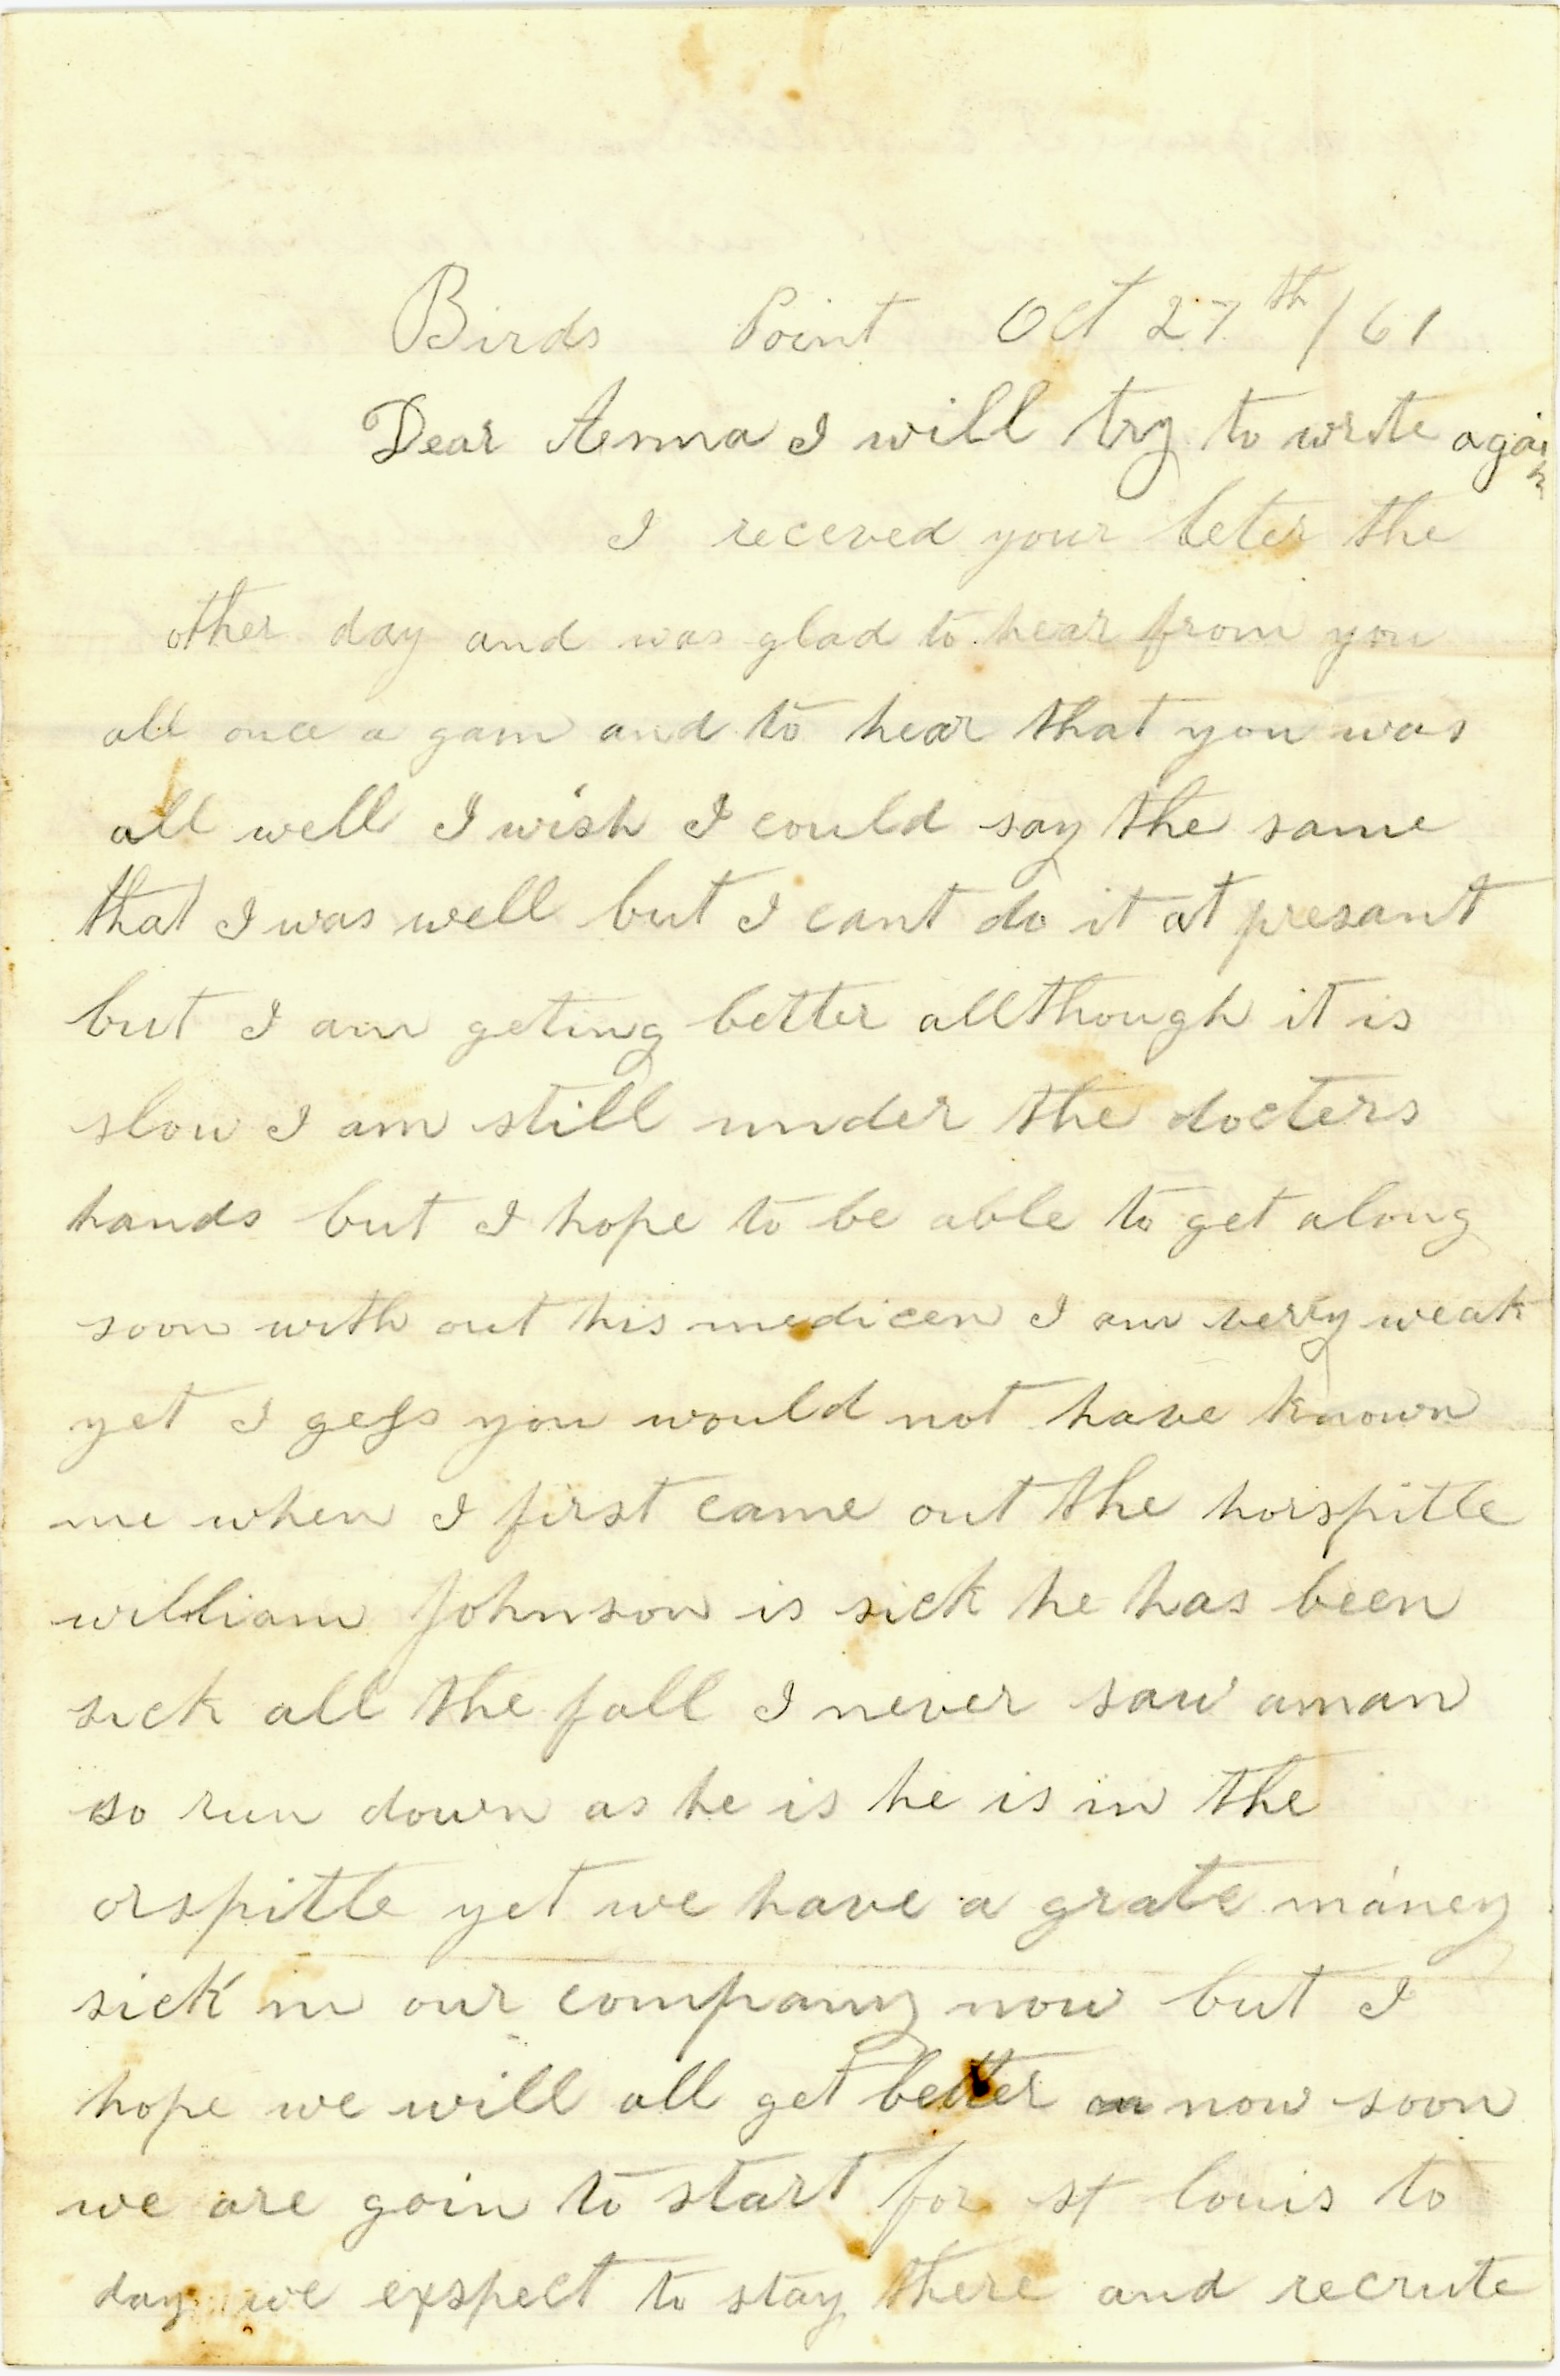 Birds Point Oct 27th/61
Dear Aenna I will try to write again
I receved your leter the
other day and was glad to hear from you
all once a gain and to hear that you was
all well I wish I could say the same
that I was well but I cant do it at presant
but I am geting better allthough it is
slow I am still under the docters
hands but I hope to be able to get along
soon with out his medicen I am verry weak
yet I gess you would not have known
me when I first came out the horspitle
william Johnson is sick he has been
sick all the fall I never saw aman
so run down as he is he is in the
orspitle yet we have a grate maney
sick in our company now but I
hope we will all get better now soon
we are goin to start for st louis to
day we exspect to stay there and recrute